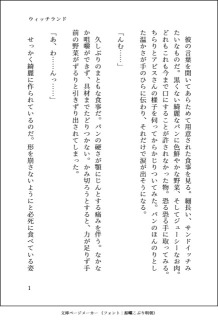 ウィッチランド
彼の言葉を聞いてあらためて用意された食事を見る。細長い、サンドイッチみ
たいなものだ。黒くない綺麗なパンに色鮮やかな野菜、そしてジューシーなお肉。
どれもこれも今まで口にすることが許されなかった物。恐る恐る手に取ってみて、
ちらりとアビスさんの様子を伺ってからかぶりついた。パンのほんのりとし
た温かさが手のひらに伝わり、それだけで涙が出そうになる。
「んむ……」
久しぶりのまともな食事だ。パンの硬さが顎にじんとする痛みを伴う。なかな
か咀嚼ができず、具材までたどりつかない。かみ切ろうとすると、力が足りず手
前の野菜がずるりと引きずり出されてしまった。
「あ、わ……んっ……」
せっかく綺麗に作られているのだ。形を崩さないようにと必死に食べている姿
1
文庫ページメーカー（フォント：源暎こぶり明朝）